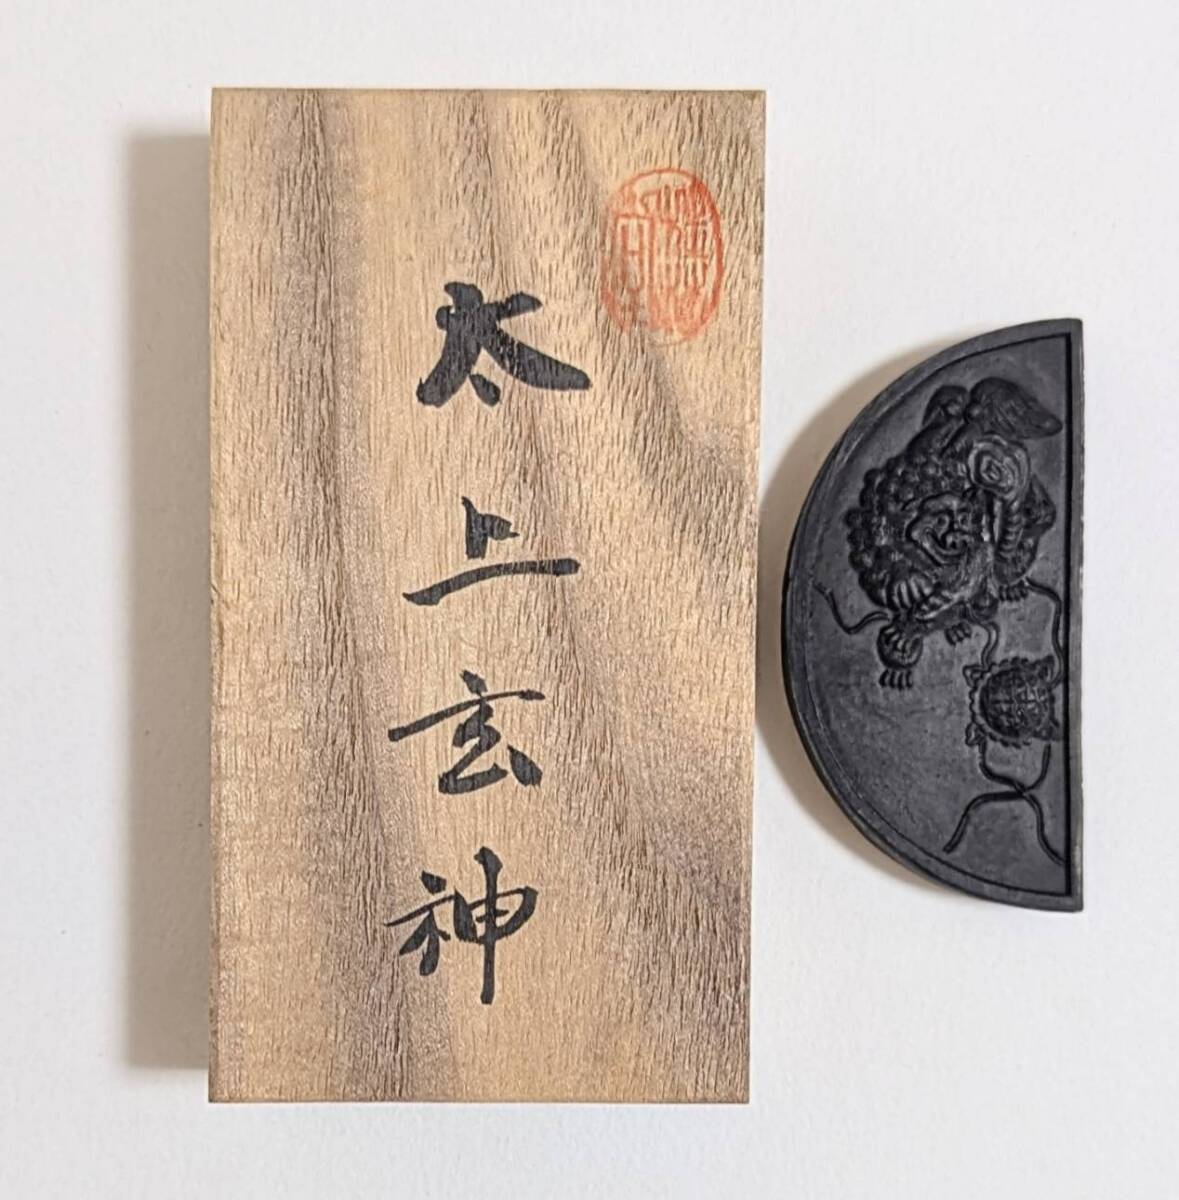 太上玄神